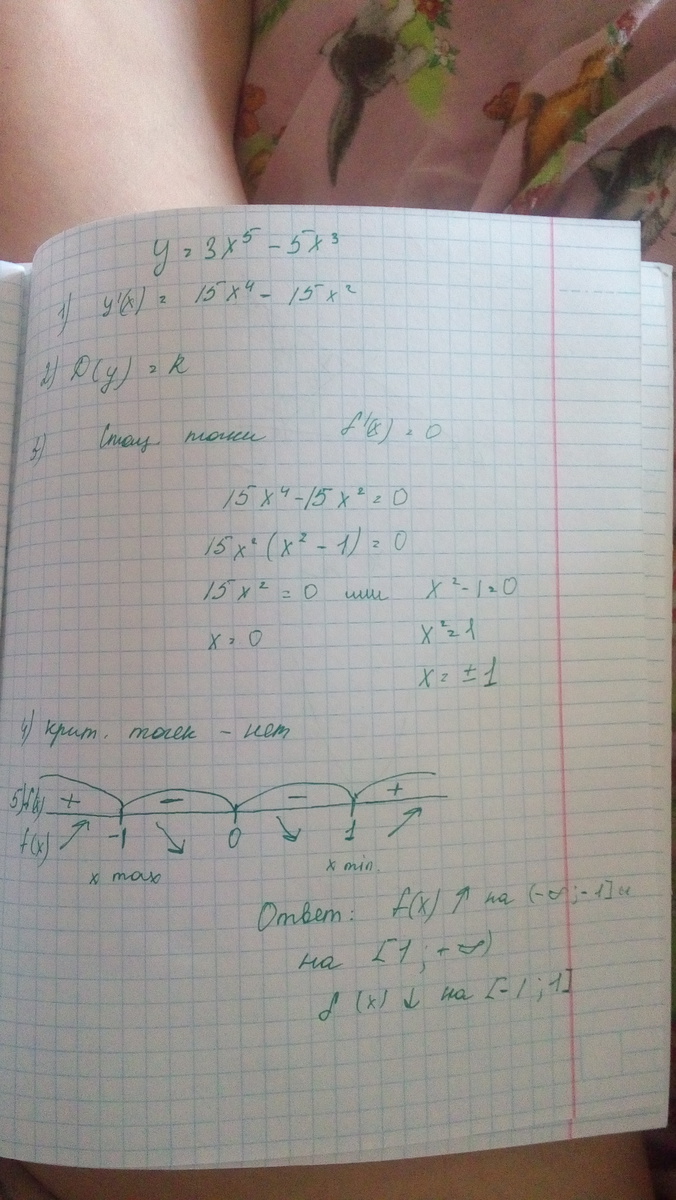 y = 3x⁵ - 5x³
1) y'(x) = 15x⁴ - 15x²
2) D(y) = R
3) Стац. точки f'(x) = 0
15x⁴ - 15x² = 0
15x² (x² - 1) = 0
15x² = 0 или x² - 1 = 0
x = 0 x² = 1
x = ± 1
4) крит. точек - нет
5) f'(x) + - - +
f(x) ↗ -1 ↘ 0 ↘ 1 ↗
x max x min.
Ответ: f(x) ↑ на (-∞; -1] и
на [1; +∞)
f(x) ↓ на [-1; 1]